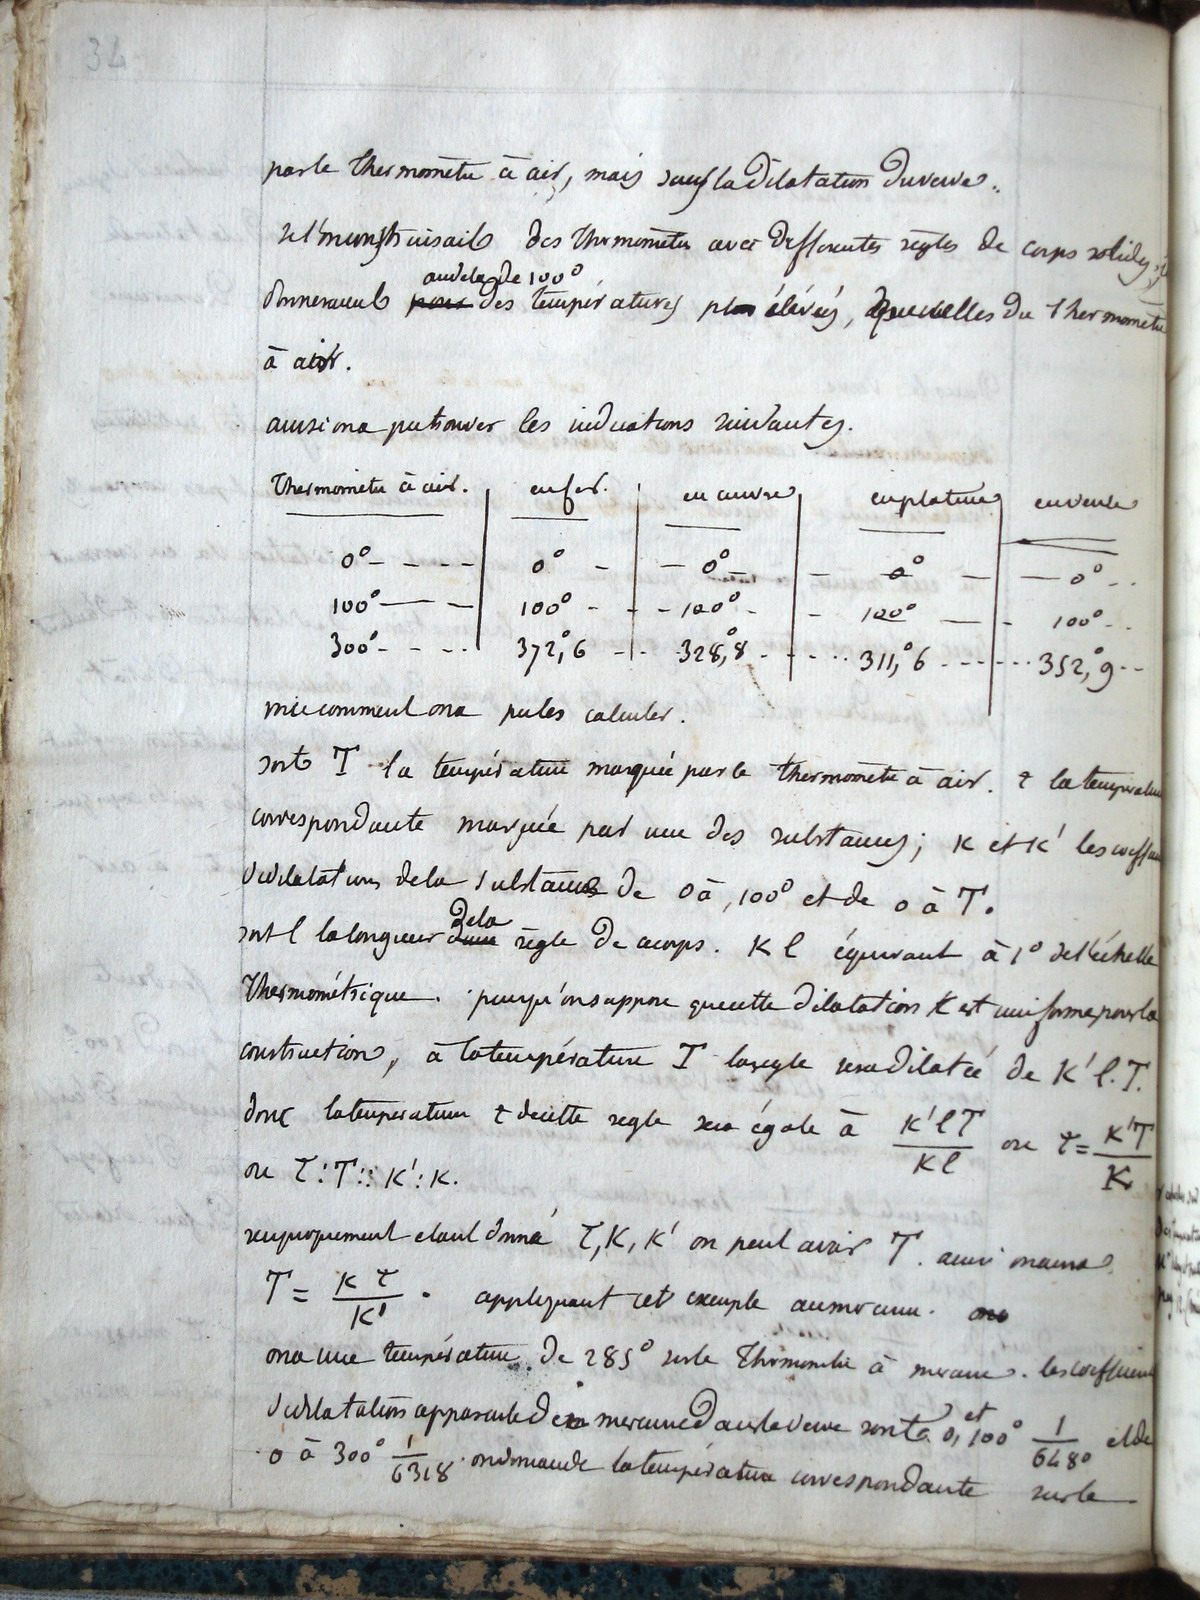 34
par le thermomètre à air, mais sauf la dilatation du verre.
si l'on construisait des thermomètres avec différentes règles de corps solides, ils
au dela de 100°
donneraient pour des températures plus élévées, que celles du thermomètre
à air.
ainsi on a pu trouver les indications suivantes.
Thermomètre à air. | en fer. | en cuivre | en platine | en verre
0° - - - - | 0° - | - 0° - | - 0° - | - 0° - -
100° — - | 100° - | - - 100° - | - 100° - | - 100° - -
300° - - - - | 372,°6 - | - 328,°8 - | - - - 311,°6 - - - | - - - 352,°9 - -
voici comment on a pu les calculer.
soit T la température marquée par le thermomètre à air. t la température
correspondante marquée par une des substances; K et K' les coeff
de dilatations de la substance de 0 à 100° et de 0 à T.
de la
soit l la longueur d'une règle de ce corps. K l équivaut à 1° de l'échelle
thermométrique. puisqu'on suppose que cette dilatation K est uniforme pour la
construction, à la température T la règle sera dilatée de K' l. T.
donc la température t de cette regle sera égale à K' l T / K l ou t = K'T / K
ou t : T :: K' : K.
reciproquement etant donné t, K, K' on peut avoir T. ainsi on aura
T = K t / K' . appliquant cet exemple au mercure.
on a une température de 285° sur le thermomètre à mercure. les coefficients
de dilatation apparente de mercure dans le verre sont 0, et 100° 1/6480 et de
0 à 300° 1/6318. on demande la température correspondante sur le